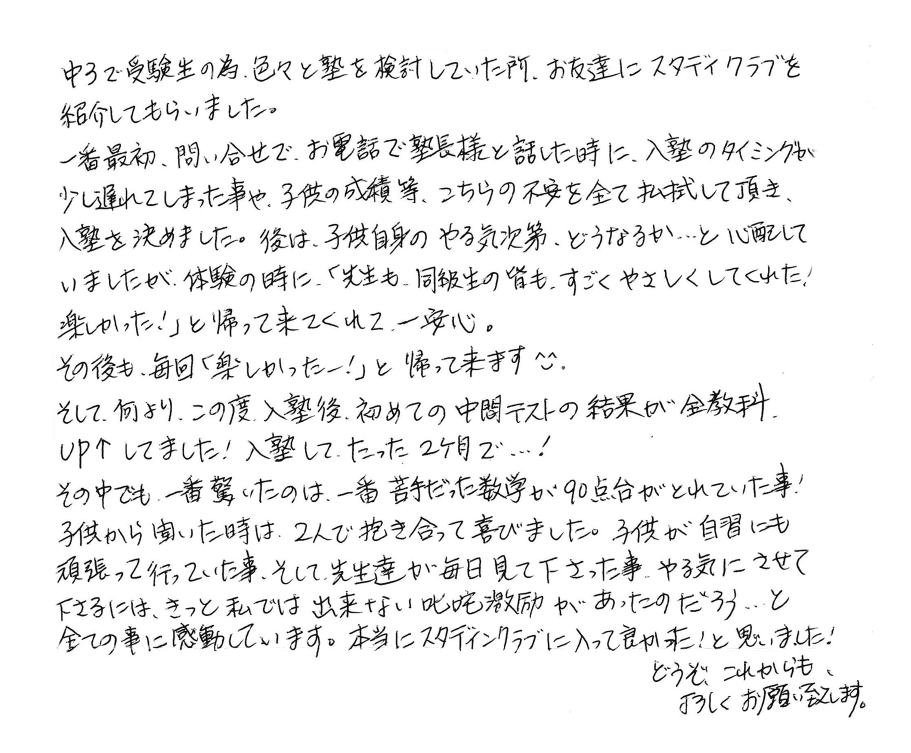 中3で受験生の為、色々と塾を検討していた所、お友達にスタディクラブを
紹介してもらいました。
一番最初、問い合せで、お電話で塾長様と話した時に、入塾のタイミングが
少し遅れてしまった事や、子供の成績等、こちらの不安を全て払拭して頂き、
入塾を決めました。後は、子供自身のやる気次第、どうなるか…と心配して
いましたが、体験の時に、「先生も、同級生の皆も、すごくやさしくしてくれた!
楽しかった!」と帰って来てくれて、一安心。
その後も、毎回「楽しかったー!」と帰って来ます。
そして、何より、この度、入塾後、初めての中間テストの結果が全教科、
UP↑してました!入塾して、たった2ケ月で…!
その中でも、一番驚いたのは、一番苦手だった数学が90点台がとれていた事!
子供から聞いた時は、2人で抱き合って喜びました。子供が自習にも
頑張って行っていた事、そして、先生達が毎日見て下さった事、やる気にさせて
下さるには、きっと私では出来ない叱咤激励があったのだろう…と
全ての事に感動しています。本当にスタディンクラブに入って良かった!と思いました!
どうぞ、これからも、
よろしくお願い致します。